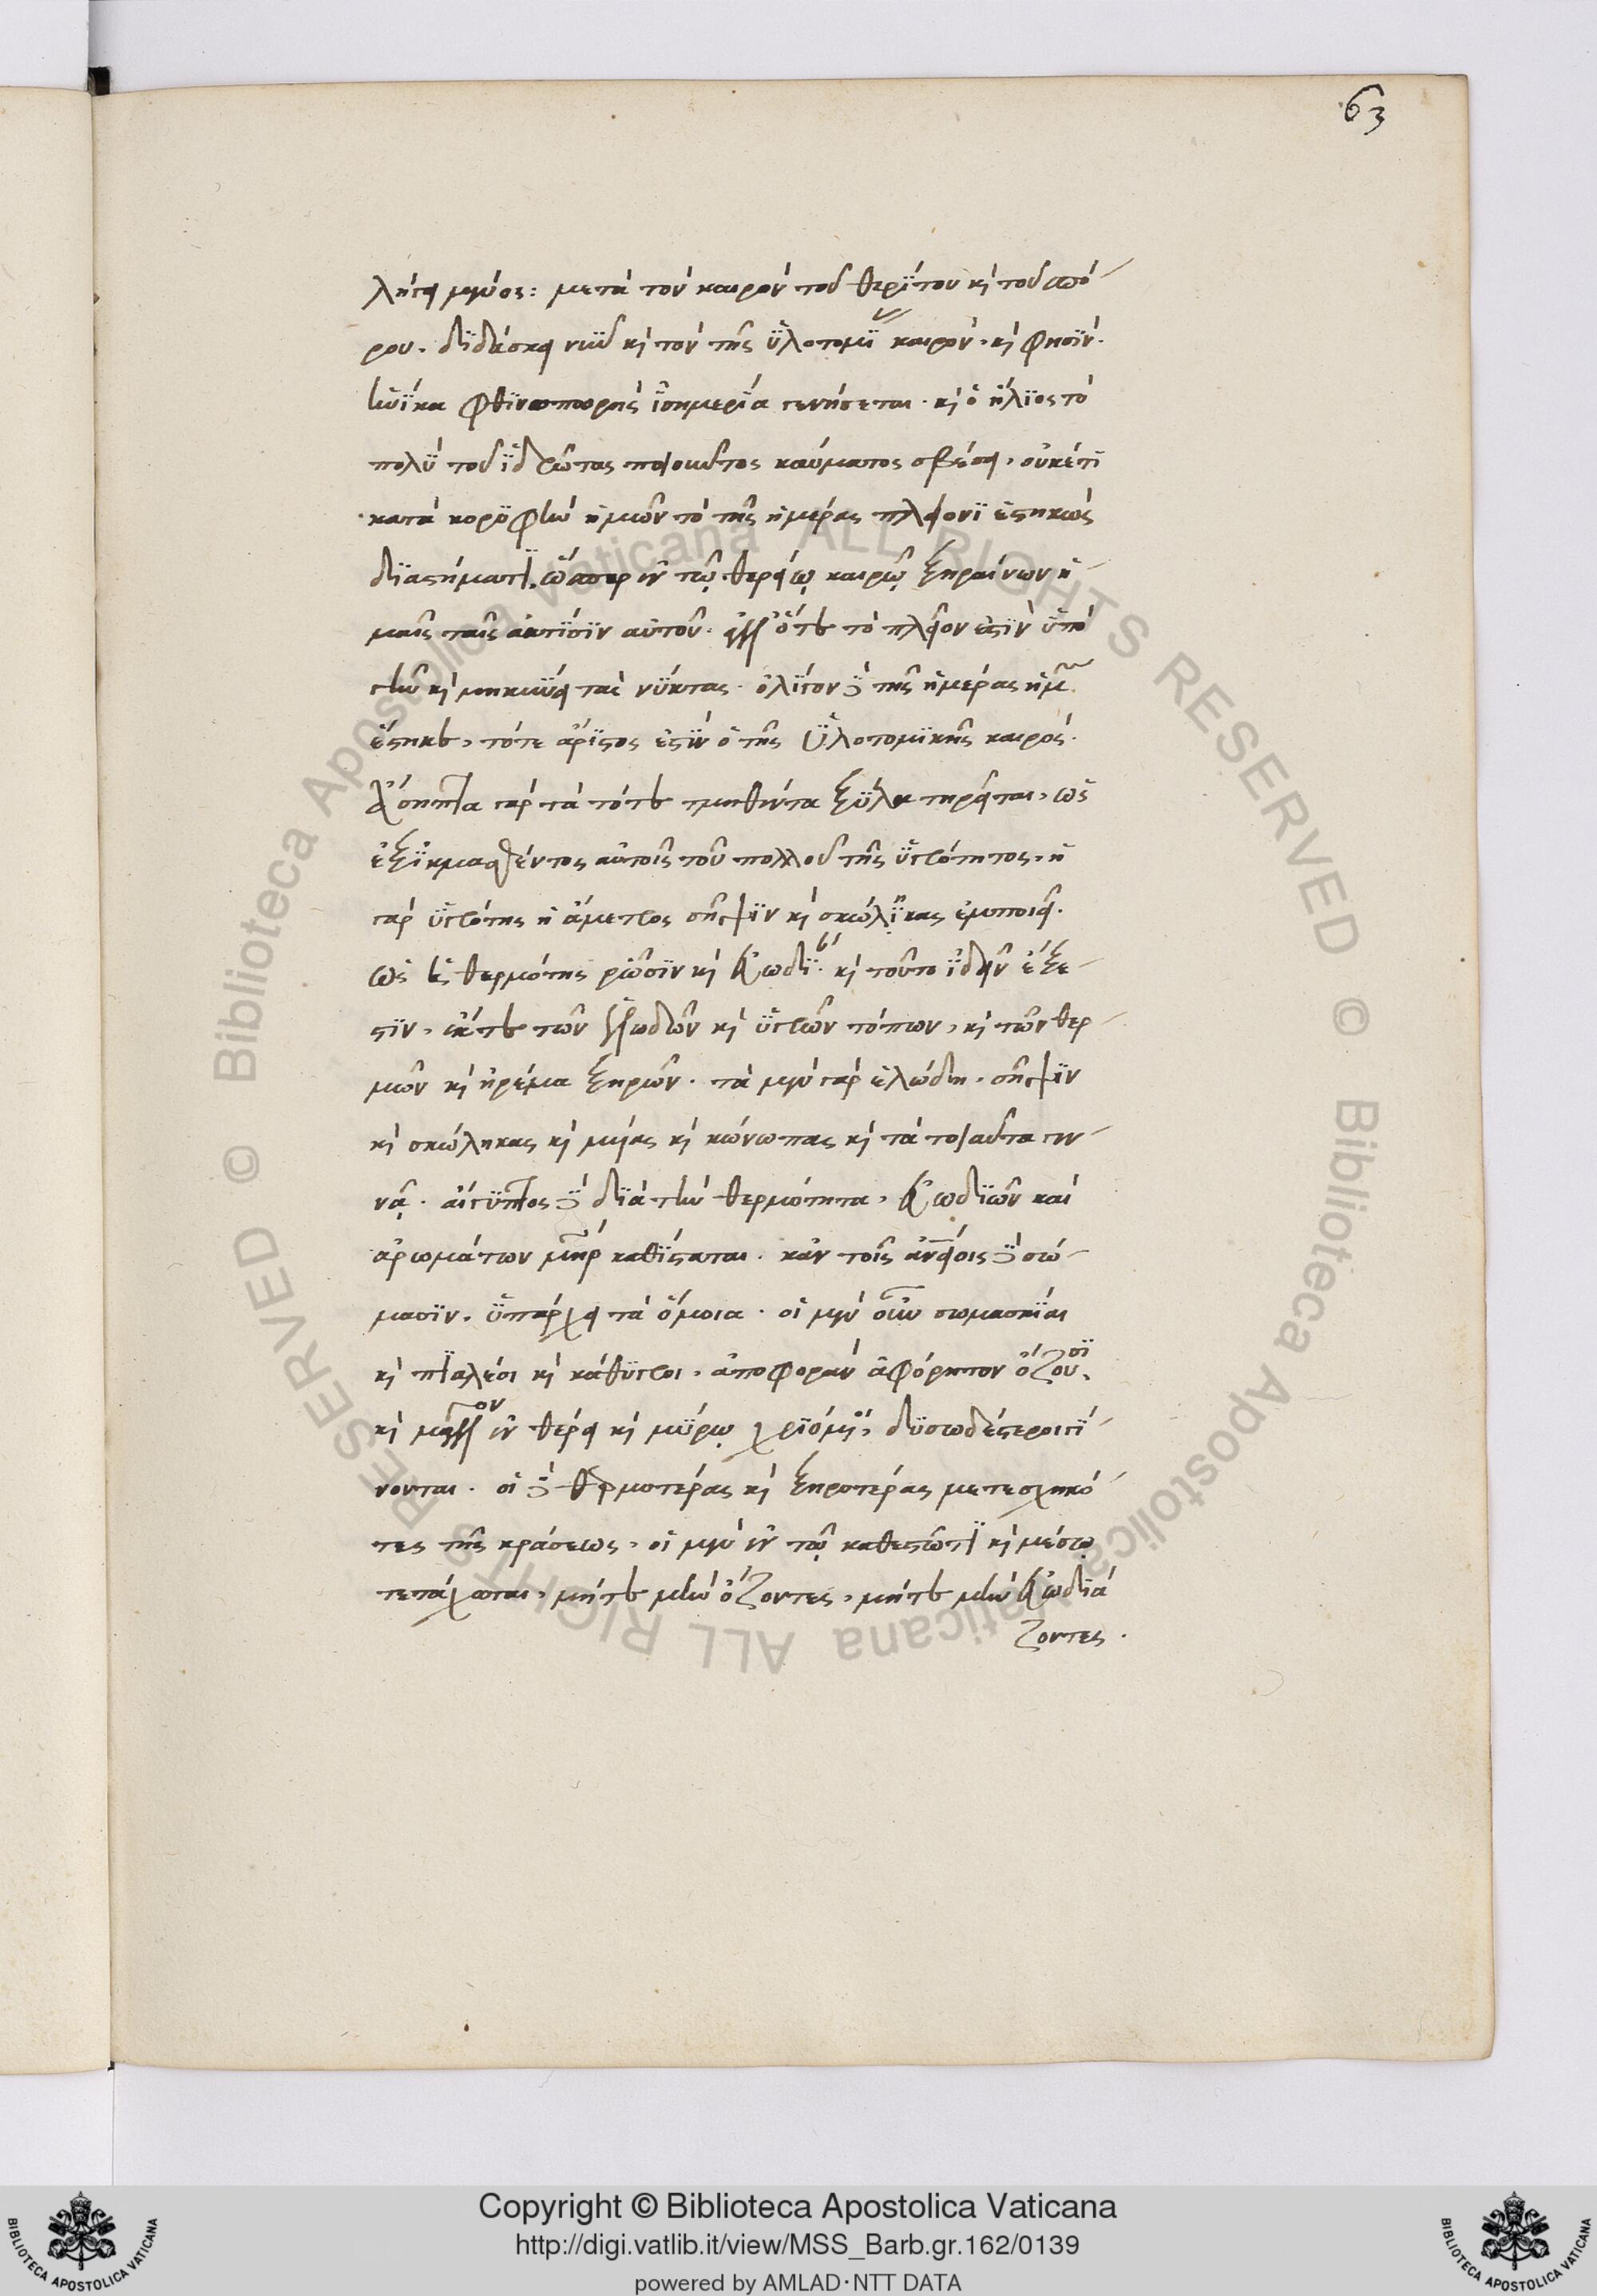 63
λήγει μένος: μετὰ τὸν καιρὸν τοῦ θερϊσμοῦ κὶ τοῦ σπό
ρου. δϊδάσκει νῦν κὶ τὸν τῆς ὑλοτομΐας καιρόν. κὶ φησΐν.
ἡνΐκα φθϊνοπωρινὴ ϊσημερΐα γενήσεται. κὶ ὁ ἥλϊος τὸ
πολὺ τοῦ ϊδρῶτας ποιοῦντος καύματος σβέσει, οὐκέτϊ
κατὰ κορϋφὴν ἡμῶν τὸ τῆς ἡμέρας πλείονϊ ἑστηκὼς
δϊαστήματϊ, ὥσπερ ἐν τῷ θερείῳ καιρῷ ξηραίνων ἡ
μᾶς ταῖς ἀκτϊσϊν αὐτοῦ. ἀλλ' ὅτε τὸ πλεῖον ἐστϊν ὑπὸ
γῆν κὶ μηκύνει τὰς νύκτας. ὀλϊγον δὲ τῆς ἡμέρας ἡμῖν
ἕστηκε, τότε ἄρϊστος ἐστϊν ὁ τῆς ὑλοτομϊκῆς καιρός.
ἄσηπτα γὰρ τὰ τότε τμηθέντα ξύλα τηρεῖται, ὡς
ἐξϊκμασθέντος αὐτοῖς τοῦ πολλοῦ τῆς ὑγρότητος. ἡ
γὰρ ὑγρότης ἡ ἄμετρος σῆψϊν κὶ σκώληκας ἐμποιεῖ.
ὡς ἡ θερμότης ῥῶσϊν κὶ εὐωδΐαν. κὶ τοῦτο ϊδεῖν ἔξε
στϊν, ἔκ τε τῶν ἑλωδῶν κὶ ὑγρῶν τόπων, κὶ τῶν θερ
μῶν κὶ ἠρέμα ξηρῶν. τὰ μὲν γὰρ ἑλώδη. σῆψϊν
κὶ σκώληκας κὶ μυίας κὶ κώνωπας κὶ τὰ τοιαῦτα γεν
νᾷ. αἴγϋπτος δὲ δϊὰ τὴν θερμότητα, εὐωδϊῶν καὶ
ἀρωμάτων μήτηρ καθϊσταται. κἂν τοῖς ἀνθρωπείοις δὲ σώ
μασϊν. ὑπάρχει τὰ ὅμοια. οἱ μὲν οὖν σωμασκΐαι
κὶ κάθϋγροι, ἀποφορὰν ἀφόρητον ὄζουσϊ.
κὶ μᾶλλον ἐν θέρει κὶ μύρῳ χρϊόμενοι, δϋσωδέστεροι γΐ
νονται. οἱ δὲ θερμοτέρας κὶ ξηροτέρας μετεσχηκό
τες τῆς κράσεως. οἱ μὲν ἐν τῷ καθεστῶτϊ κὶ μέσῳ
τετάχαται, μήτε μὴν ὄζοντες, μήτε μὴν εὐωδϊά
ζοντες.
Copyright © Biblioteca Apostolica Vaticana
http://digi.vatlib.it/view/MSS_Barb.gr.162/0139
powered by AMLAD·NTT DATA
BIBLIOTECA APOSTOLICA VATICANA
BIBLIOTECA APOSTOLICA VATICANA
© Biblioteca Apostolica Vaticana ALL RIGHTS RESERVED © Biblioteca Apostolica Vaticana ALL RIGHTS RESERVED